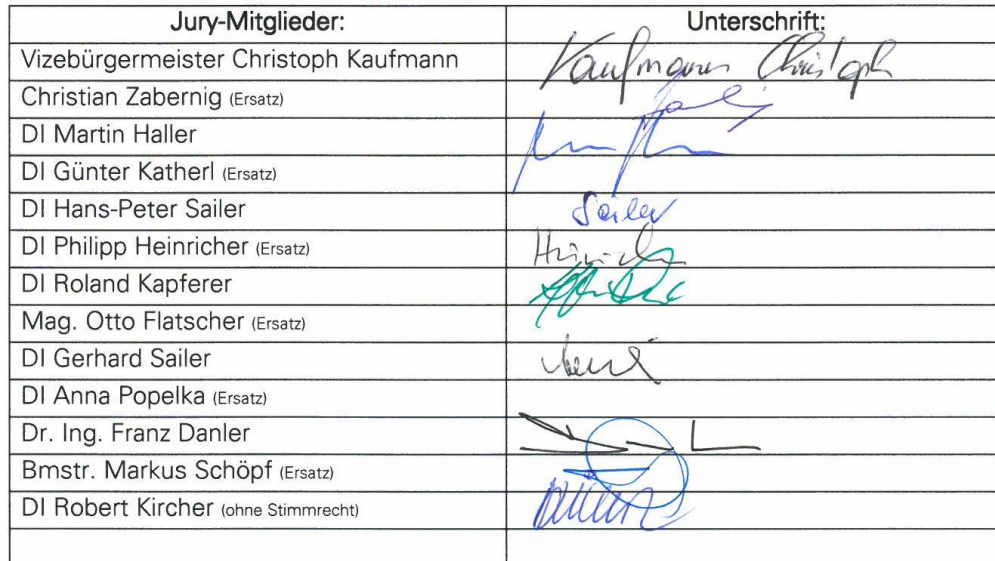 Jury-Mitglieder: Unterschrift:
Vizebürgermeister Christoph Kaufmann Kaufmann Christoph
Christian Zabernig (Ersatz)
DI Martin Haller
DI Günter Katherl (Ersatz)
DI Hans-Peter Sailer Sailer
DI Philipp Heinricher (Ersatz)
DI Roland Kapferer
Mag. Otto Flatscher (Ersatz)
DI Gerhard Sailer
DI Anna Popelka (Ersatz)
Dr. Ing. Franz Danler
Bmstr. Markus Schöpf (Ersatz)
DI Robert Kircher (ohne Stimmrecht)